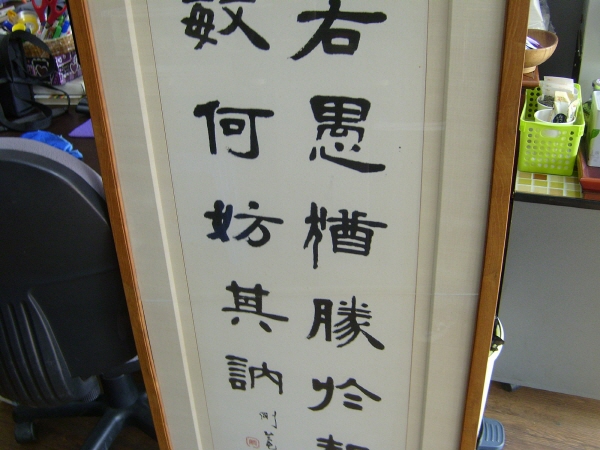 右愚楢勝於
敏何妨其訥